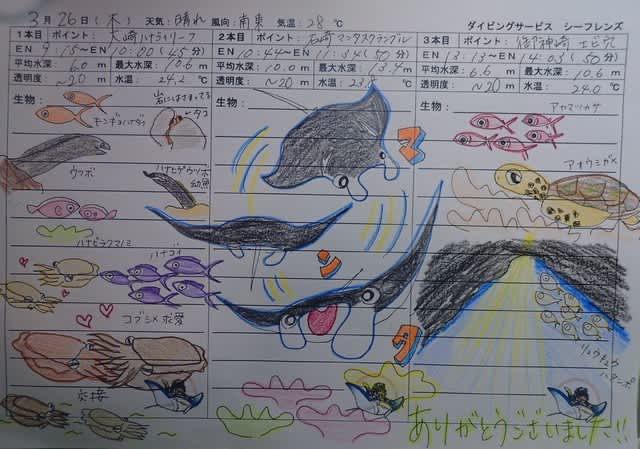 3月26日(木) 天気:晴れ 風向:南東 気温:28℃
ダイビングサービス シーフレンズ
1本目 ポイント:大崎ハナゴイリーフ
EN 9:15～EN 10:00 (45分)
平均水深: 6.0 m 最大水深: 10.6 m
透明度: ~20 m 水温: 24.2 ℃
生物:
キンギョハナダイ
岩にはさまってる
タコ
ウツボ
ハナヒゲウツボ
幼魚
ハナビラクマノミ
ハナゴイ
コブシメ求愛
交接
2本目 ポイント:石崎マンタスクランブル
EN 10:44～EN 11:34 (50分)
平均水深: 10.0 m 最大水深: 13.4 m
透明度: ~20 m 水温: 23. ℃
生物:
マンタ
3本目 ポイント:御神崎
EN 13:13～EN 14:03 (50分)
平均水深: 6.6 m 最大水深: 10.6 m
透明度: ~20 m 水温: 24.0 ℃
生物:
アカマツカサ
アオウミガメ
リュウキュウ
ハタンポ
ありがとうございました!!